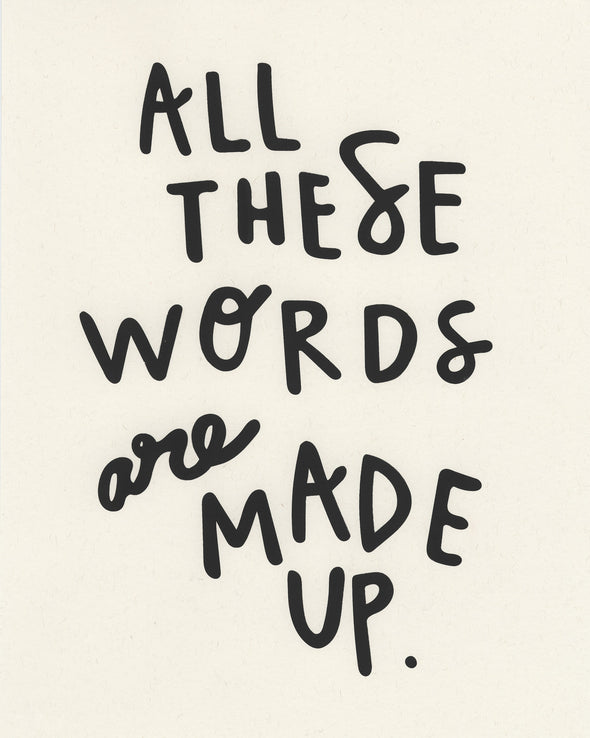 ALL
THESE
WORDS
are
MADE
UP.